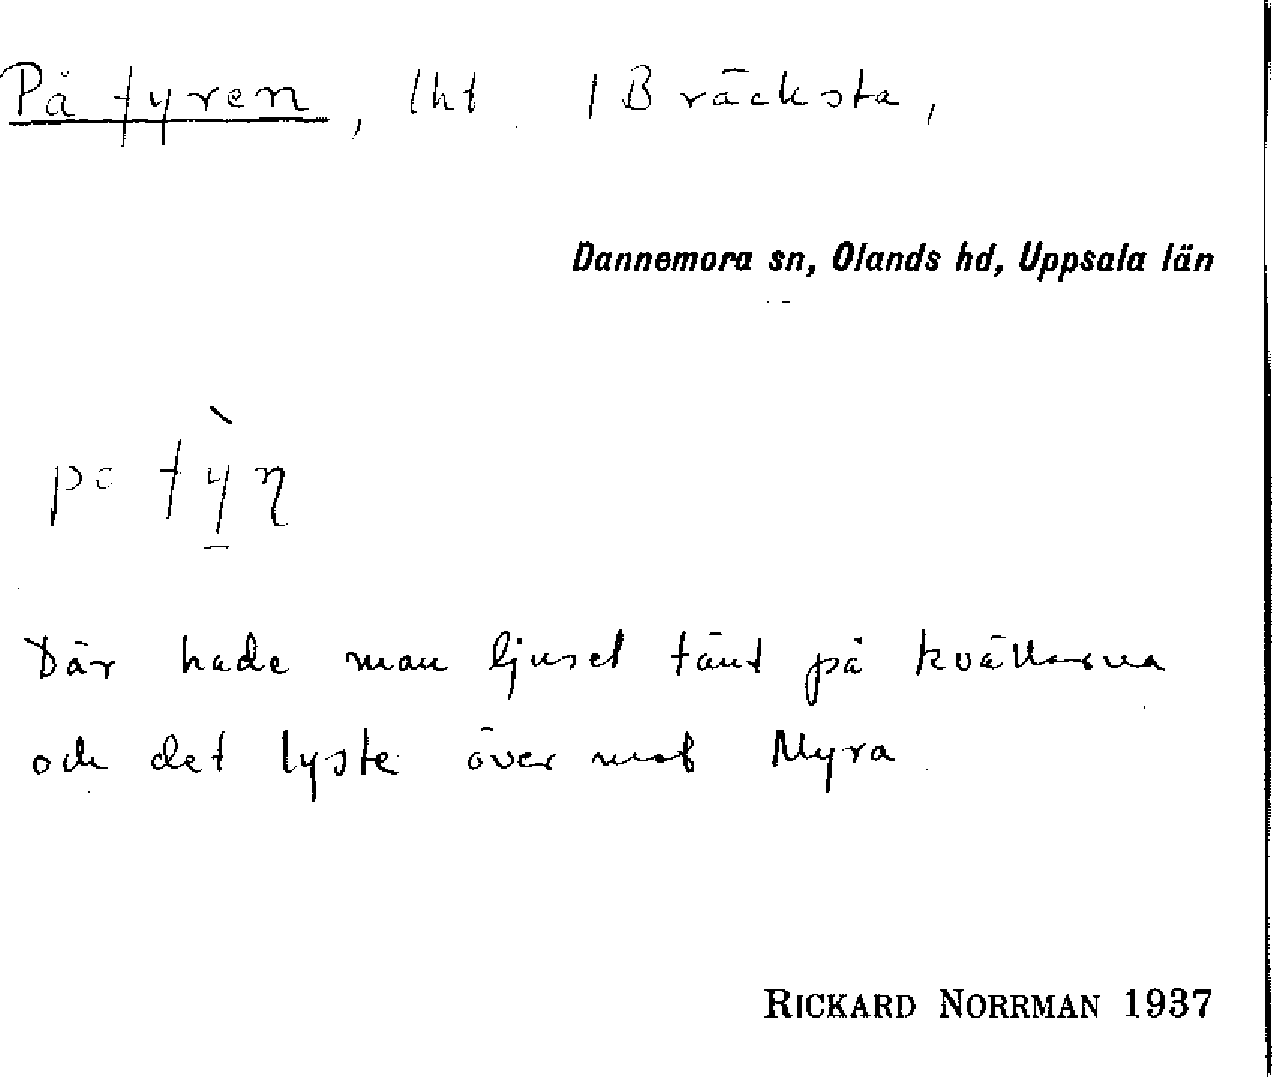 På fyren, lht i Bräcksta,
Dannemora sn, Olands hd, Uppsala län
på fỳ̱n
Där hade man ljuset tänt på kvällarna
och det lyste över mot Myra.
RICKARD NORRMAN 1937